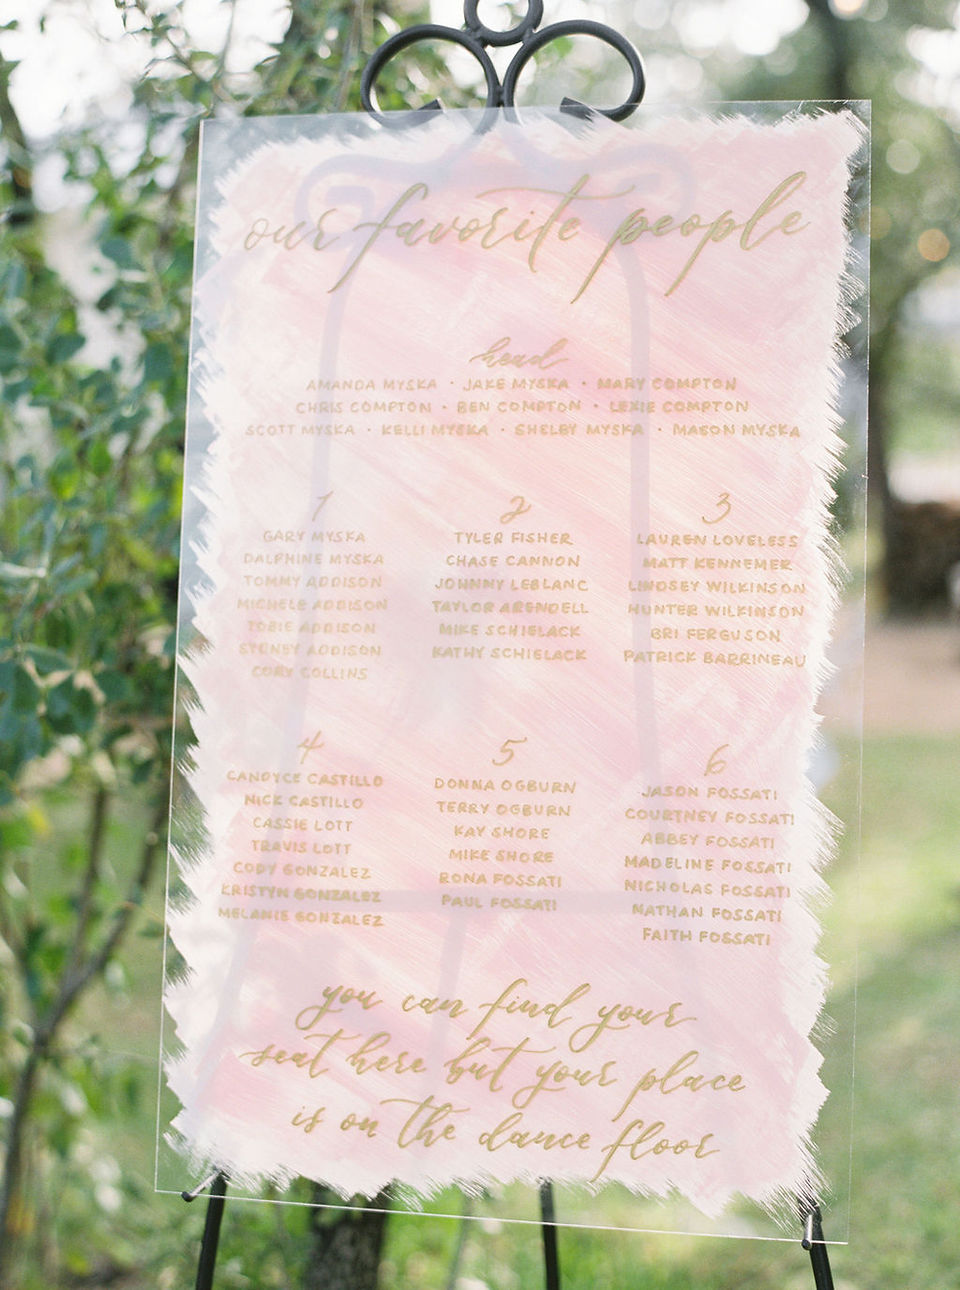 our favorite people
head
AMANDA MYSKA · JAKE MYSKA · MARY COMPTON
CHRIS COMPTON · BEN COMPTON · LEXIE COMPTON
SCOTT MYSKA · KELLI MYSKA · SHELBY MYSKA · MASON MYSKA
1
GARY MYSKA
DALPHINE MYSKA
TOMMY ADDISON
MICHELE ADDISON
TOBIE ADDISON
STENEY ADDISON
CORY COLLINS
2
TYLER FISHER
CHASE CANNON
JOHNNY LEBLANC
TAYLOR ARENDELL
MIKE SCHIELACK
KATHY SCHIELACK
3
LAUREN LOVELESS
MATT KENNEMER
LINDSEY WILKINSON
HUNTER WILKINSON
BRI FERGUSON
PATRICK BARRINEAU
4
CANDYCE CASTILLO
NICK CASTILLO
CASSIE LOTT
TRAVIS LOTT
CODY GONZALEZ
KRISTYN GONZALEZ
MELANIE GONZALEZ
5
DONNA OGBURN
TERRY OGBURN
KAY SHORE
MIKE SHORE
RONA FOSSATI
PAUL FOSSATI
6
JASON FOSSATI
COURTNEY FOSSATI
ABBEY FOSSATI
MADELINE FOSSATI
NICHOLAS FOSSATI
NATHAN FOSSATI
FAITH FOSSATI
you can find your
seat here but your place
is on the dance floor